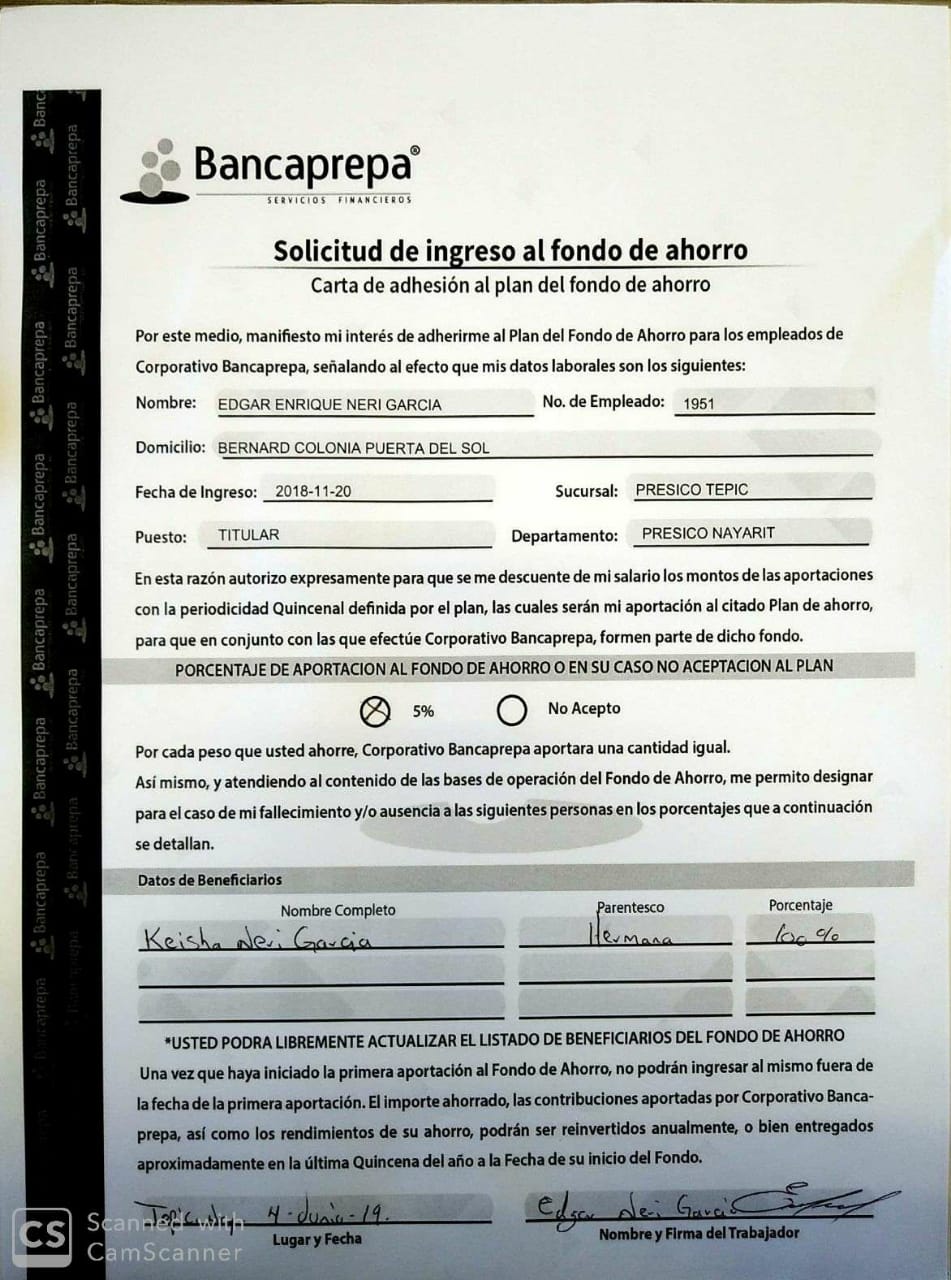 Bancaprepa®
SERVICIOS FINANCIEROS
Solicitud de ingreso al fondo de ahorro
Carta de adhesión al plan del fondo de ahorro
Por este medio, manifiesto mi interés de adherirme al Plan del Fondo de Ahorro para los empleados de
Corporativo Bancaprepa, señalando al efecto que mis datos laborales son los siguientes:
Nombre: EDGAR ENRIQUE NERI GARCIA No. de Empleado: 1951
Domicilio: BERNARD COLONIA PUERTA DEL SOL
Fecha de Ingreso: 2018-11-20 Sucursal: PRESICO TEPIC
Puesto: TITULAR Departamento: PRESICO NAYARIT
En esta razón autorizo expresamente para que se me descuente de mi salario los montos de las aportaciones
con la periodicidad Quincenal definida por el plan, las cuales serán mi aportación al citado Plan de ahorro,
para que en conjunto con las que efectúe Corporativo Bancaprepa, formen parte de dicho fondo.
PORCENTAJE DE APORTACION AL FONDO DE AHORRO O EN SU CASO NO ACEPTACION AL PLAN
5% No Acepto
Por cada peso que usted ahorre, Corporativo Bancaprepa aportara una cantidad igual.
Así mismo, y atendiendo al contenido de las bases de operación del Fondo de Ahorro, me permito designar
para el caso de mi fallecimiento y/o ausencia a las siguientes personas en los porcentajes que a continuación
se detallan.
Datos de Beneficiarios
Nombre Completo Parentesco Porcentaje
Keisha Neri Garcia Hermana 100 %
*USTED PODRA LIBREMENTE ACTUALIZAR EL LISTADO DE BENEFICIARIOS DEL FONDO DE AHORRO
Una vez que haya iniciado la primera aportación al Fondo de Ahorro, no podrán ingresar al mismo fuera de
la fecha de la primera aportación. El importe ahorrado, las contribuciones aportadas por Corporativo Banca-
prepa, así como los rendimientos de su ahorro, podrán ser reinvertidos anualmente, o bien entregados
aproximadamente en la última Quincena del año a la Fecha de su inicio del Fondo.
Tepic Nay 4-Junio-19. Edgar Neri Garcia
Lugar y Fecha Nombre y Firma del Trabajador
CS Scanned with
CamScanner